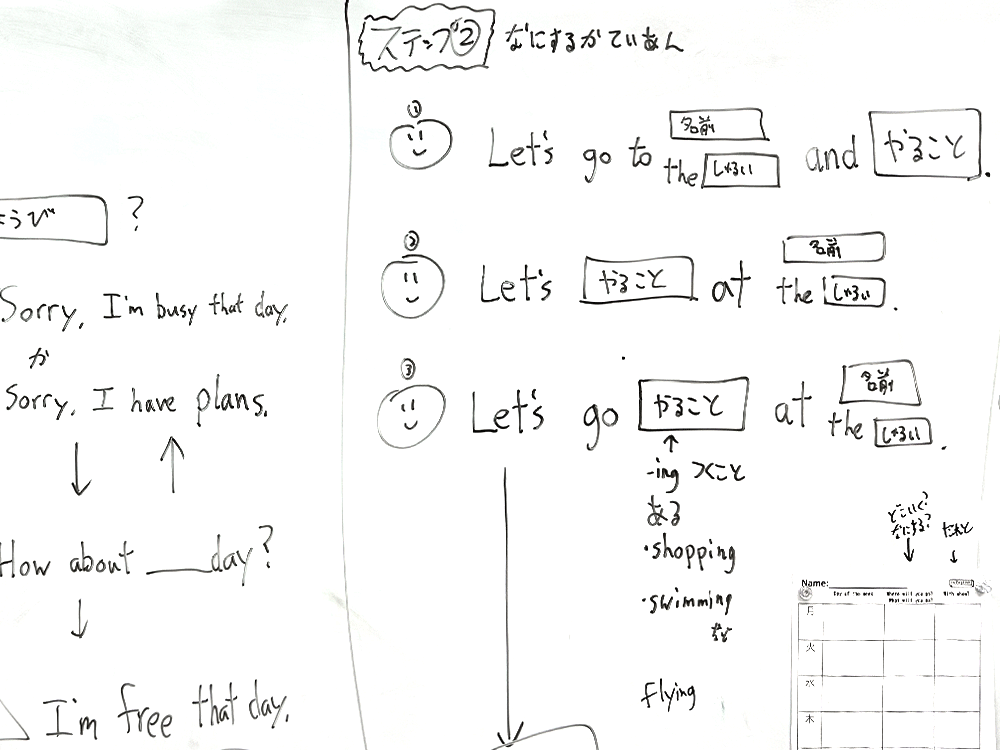 ようび ?
Sorry, I'm busy that day.
か
Sorry, I have plans.
How about ___day?
I'm free that day.
ステップ② なにするかていあん
①
Let's go to 名前 and やること.
the しゅるい
②
Let's やること at 名前
the しゅるい.
③
Let's go やること at 名前
the しゅるい.
-ing つくこと
ある
・shopping
・swimming
など
flying
どこいく?
なにする?
だれと
Name:
Day of the week
Where will you go?
What will you do?
With whom?
月
火
水
木